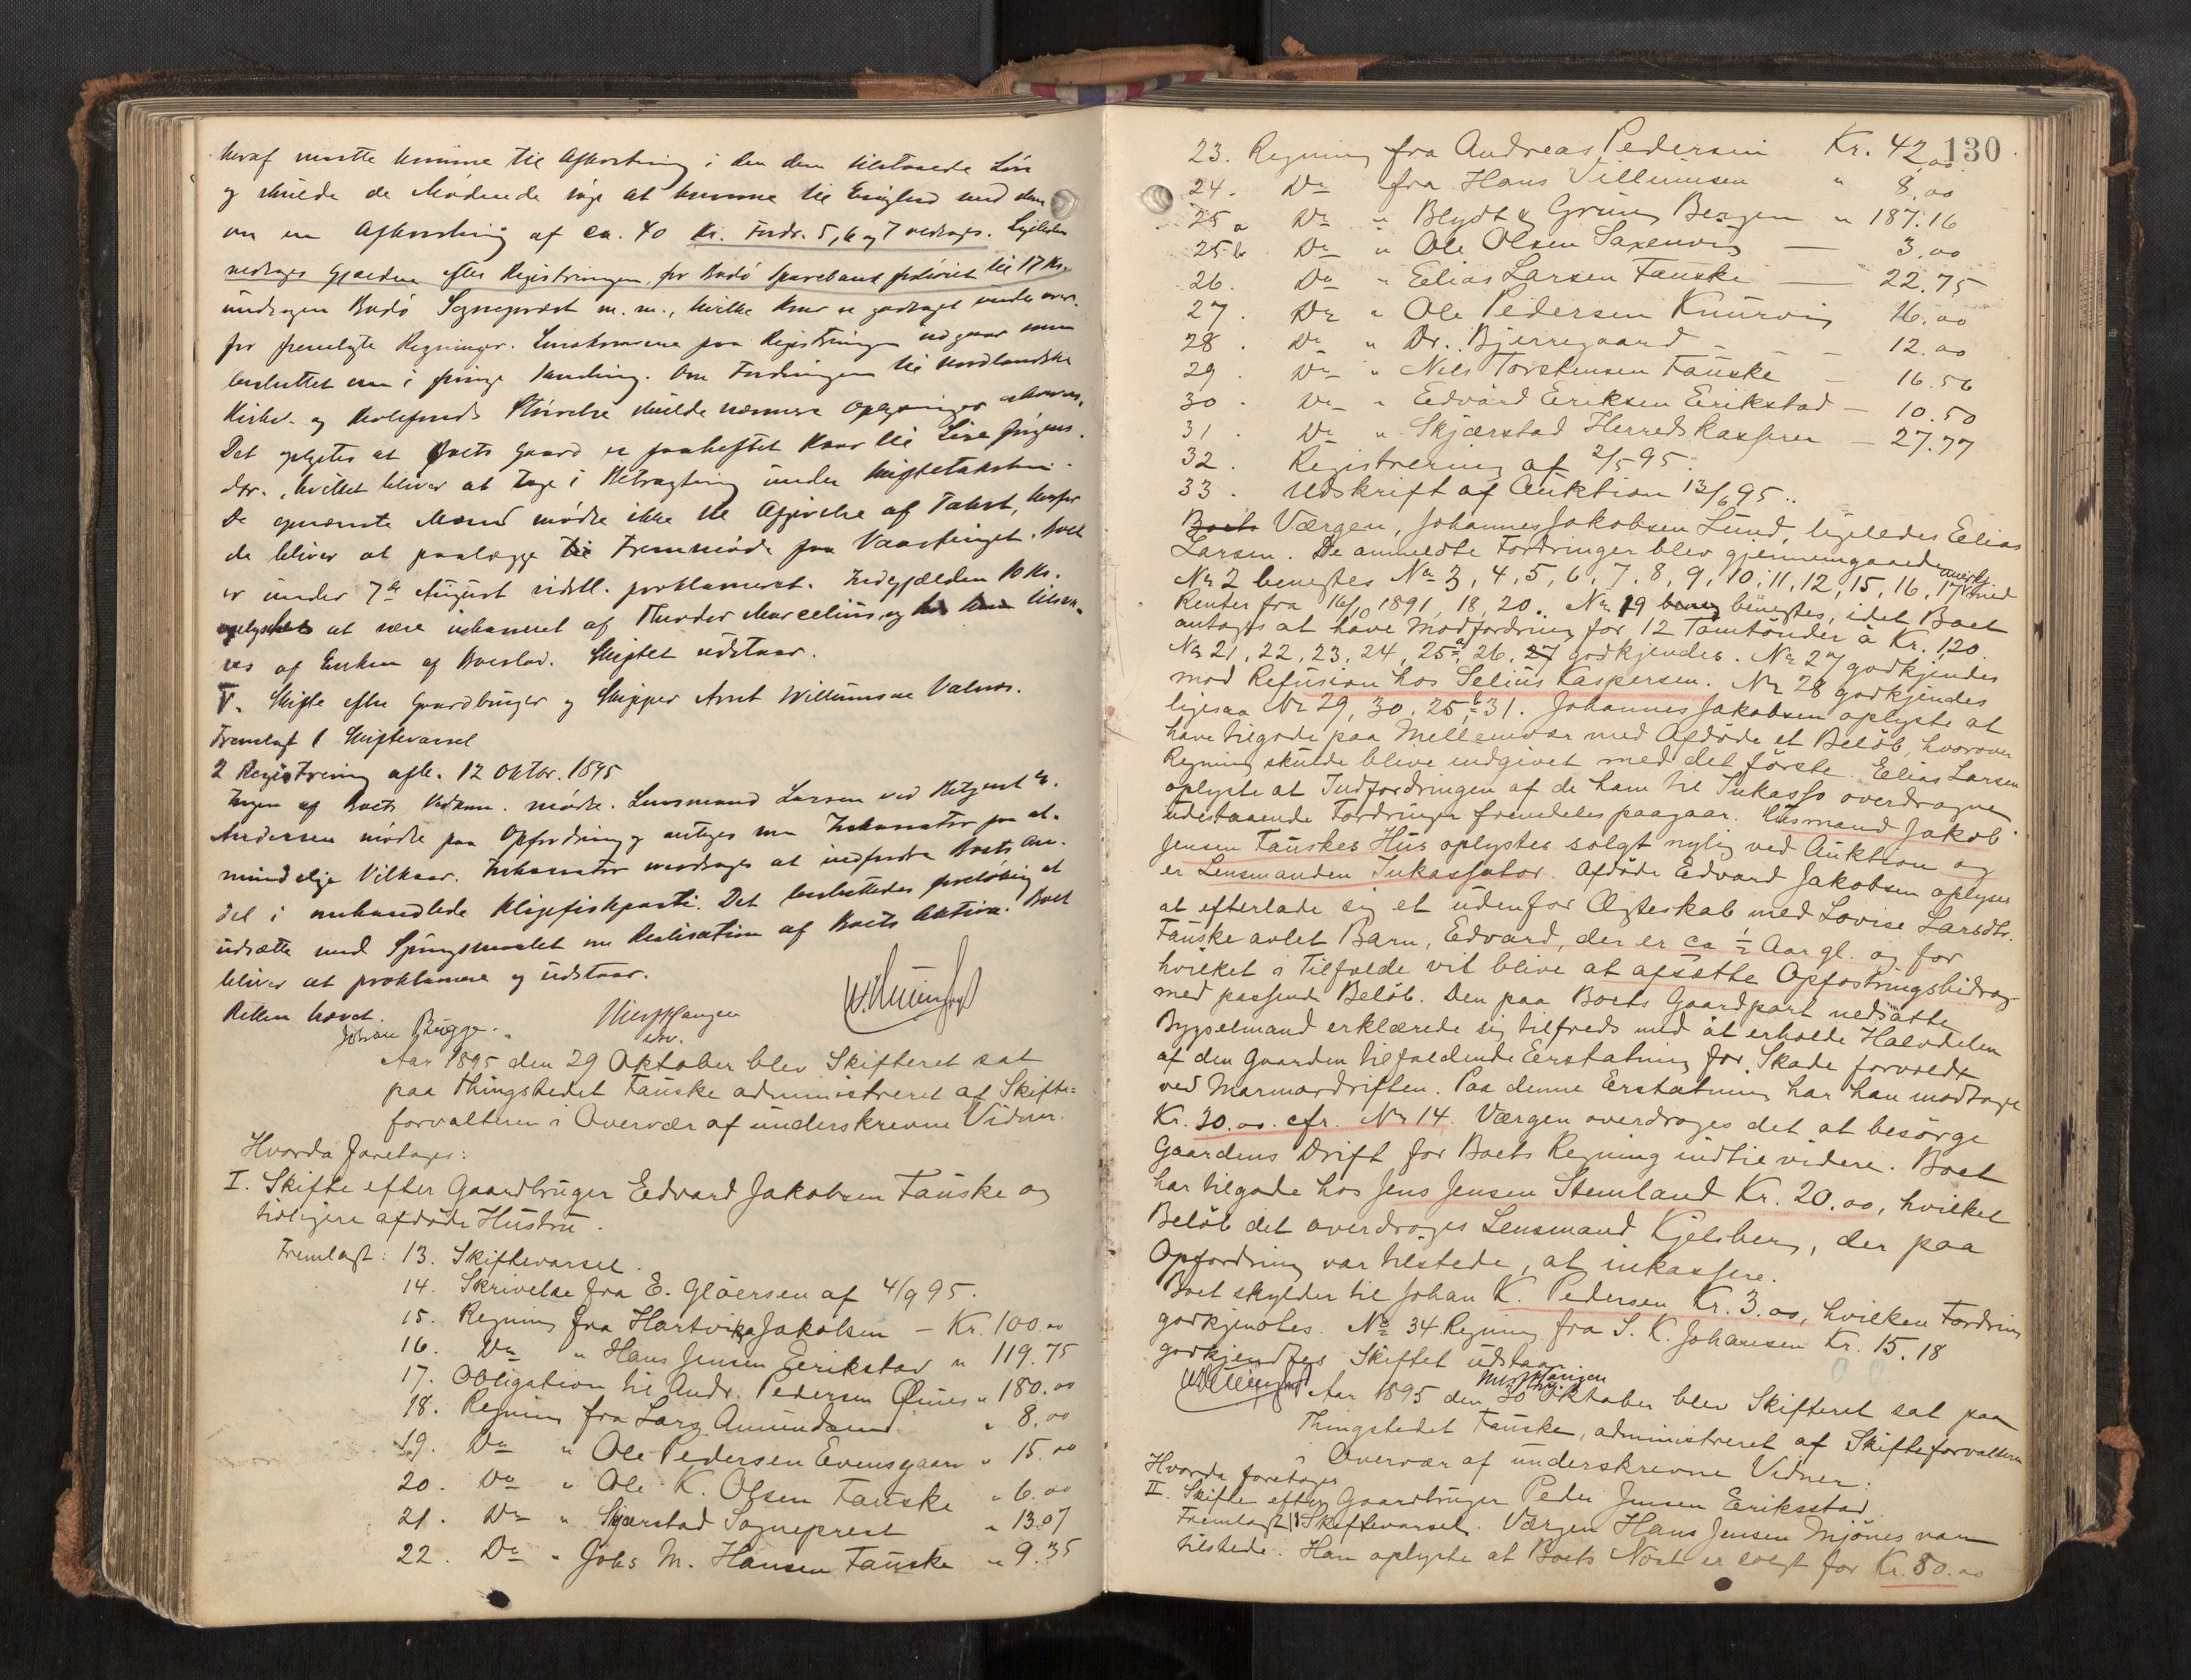 heraf maatte komme til Afkortning i den dem tilstaaede Løn
og skulde de Mødende søge at komme til Enighed med dem
om en Afkortning af ca. 40 Kr. Fordr. 5, 6 og 7 vedtages. Ligeledes
vedtages Gjælden efter Registreringen, for Bodö Sparebank forhöiet til 17 Kr.
undtagen Bodö Sogneprest m. m., hvilke Krav er godtaget under
for fremlagte Regninger.
besluttet om i forrige Samling. Om Fordringen til Nordlandske
Kirke- og Skolefonds Skrivelse skulde nærmere Oplysninger
Det oplystes at Boets Gaard er paaheftet Kaar til Lise Jörgens-
dtr., hvilket bliver at tage i Betragtning under Skiftetaksten.
De opnævnte Mænd mødte ikke til Afgivelse af Takst, hvorfor
de bliver at paalægge Fremmöde paa Vaartinget. Boet
er under 7de August sidstl. proklameret. Indgjælden 10 Kr.
oplystes at være inkasseret af Theodor Marcelius, og
res af Enken af Boeslod. Skiftet udstaar.
V. Skifte efter Gaardbruger og Skipper Arnt Willumsen Valnes.
Fremlagt 1 Skiftevarsel
2 Registrering afh. 12 Oktbr. 1895
Ingen af Boets Vedkom. mødte. Lensmand Larsen ved
Andersen mødte paa Opfordring og antages som Inkassator paa al-
mindelige Vilkaar. Inkassator overdrages at indfordre Boets An-
del i omhandlede Klipfiskparti. Det besluttedes foreløbig at
udsætte med Spörgsmaalet om Realisation af Boets Aktiva. Boet
bliver at proklamere og udstaar.
Retten hævet.
Johan Brügge.
Aar 1895 den 29 Oktober blev Skifteret sat
paa Thingstedet Fauske administreret af Skifte=
forvalteren i Overvær af underskrevne Vidner.
Hvorda foretages:
I. Skifte efter Gaardbruger Edvard Jakobsen Fauske og
tidligere afdöde Hustru.
Fremlagt: 13. Skiftevarsel.
14. Skrivelse fra E. Glöersen af 4/9 95.
15. Regning fra Hartvika Jakobsen – Kr. 100.00
16. Do " Hans Jensen Erikstad " 119.75
17. Obligation til Andr. Pedersen Öines " 180.00
18. Regning fra Lars Amundsen " 8.00
19. Do " Ole Pedersen Evensgaard " 15.00
20. Do " Ole K. Olsen Fauske " 6.00
21. Do " Skjerstad Sogneprest " 13.07
22. Do " Johs M. Hansen Fauske " 9.35
130
23. Regning fra Andreas Pedersen Kr. 42.00
24. Do fra Hans Villumsen " 8.00
25 a Do " Blydt & Grung Bergen " 187.16
25 b Do " Ole Olsen Saxenvig — 3.00
26. Do " Elias Larsen Fauske — 22.75
27. Do " Ole Pedersen Knurvig 16.00
28. Do " Dr. Bjerregaard – – – 12.00
29. Do " Nils Torstensen Fauske – 16.56
30. Do " Edvard Eriksen Erikstad – 10.50
31. Do " Skjærstad Herredskasserer – 27.77
32. Registrering af 2/5 95.
33. Udskrift af Auktion 13/6 95.
Boets Værgen, Johannes Jakobsen Lund, ligeledes Elias
Larsen. De anmeldte Fordringer blev gjennemgaaede
No 2 benegtes No 3, 4, 5, 6, 7, 8, 9, 10, 11, 12, 15, 16, 17 med
Renter fra 16/10 1891, 18, 20. No 19 benegtes, idet Boet
antages at have Modfordring for 12 Tomtönder à Kr. 1.20.
No 21, 22, 23, 24, 25a, 26, 27 godkjendes. No 27 godkjendes
mod Refusion hos Selius Kaspersen. No 28 godkjendes
ligesaa No 29, 30, 25b, 31. Johannes Jakobsen oplyste at
have tilgode paa Mellemvær med Afdøde et Belöb, hvorover
Regning skulde blive indgivet med det förste. Elias Larsen
oplyste at Indfordringen af de ham til Inkasso overdragne
udestaaende Fordringer fremdeles paagaar. Husmand Jakob
Jensen Fauskes Hus oplystes solgt nylig ved Auktion og
er Lensmanden Inkassator. Afdöde Edvard Jakobsen oplyses
at efterlade sig et udenfor Ægteskab med Lovise Larsdtr.
Fauske avlet Barn, Edvard, der er ca ½ Aar gl. og for
hvilket i Tilfælde vil blive at afsætte Opfostringsbidrag
med passende Belöb. Den paa Boets Gaardpart nedsatte
Bygselmand erklærede sig tilfreds med at erholde Halvdelen
af den Gaarden tilfaldende Erstatning for Skade forvoldt
ved Marmordriften. Paa denne Erstatning har han modtaget
Kr. 20.00. cfr. No 14. Værgen overdrages det at besörge
Gaardens Drift for Boets Regning indtil videre. Boet
har tilgode hos Jens Jensen Stemland Kr. 20.00, hvilket
Belöb det overdrages Lensmand Kjelsberg, der paa
Opfordring var tilstede, at inkassere.
Boet skylder til Johan K. Pedersen Kr. 3.00, hvilken Fordring
godkjendtes. No 34 Regning fra S. K. Johansen Kr. 15.18
godkjendtes Skiftet udstaar.
Aar 1895 den 30 Oktober blev Skifteret sat paa
Thingstedet Fauske, administreret af Skifteforvalteren
i Overvær af underskrevne Vidner:
Hvorda foretages
II. Skifte efter Gaardbruger Peder Jensen Eriksstad
Fremlagt 11 Skiftevarsel. Værgen Hans Jensen Mjönes var
tilstede. Han oplyste at Boets Nöst er solgt for Kr. 80.00